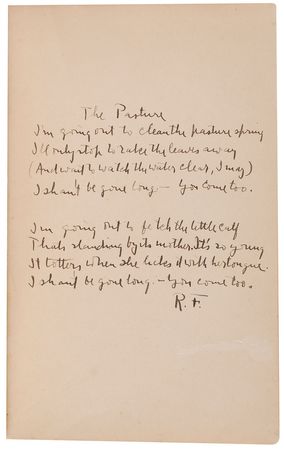 The Pasture
I'm going out to clean the pasture spring
I'll only stop to rake the leaves away
(And wait to watch the water clear, I may)
I shan't be gone long — You come too.
I'm going out to fetch the little calf
Thats standing by its mother. It's so young
It totters when she licks it with her tongue.
I shan't be gone long — You come too.
R. F.